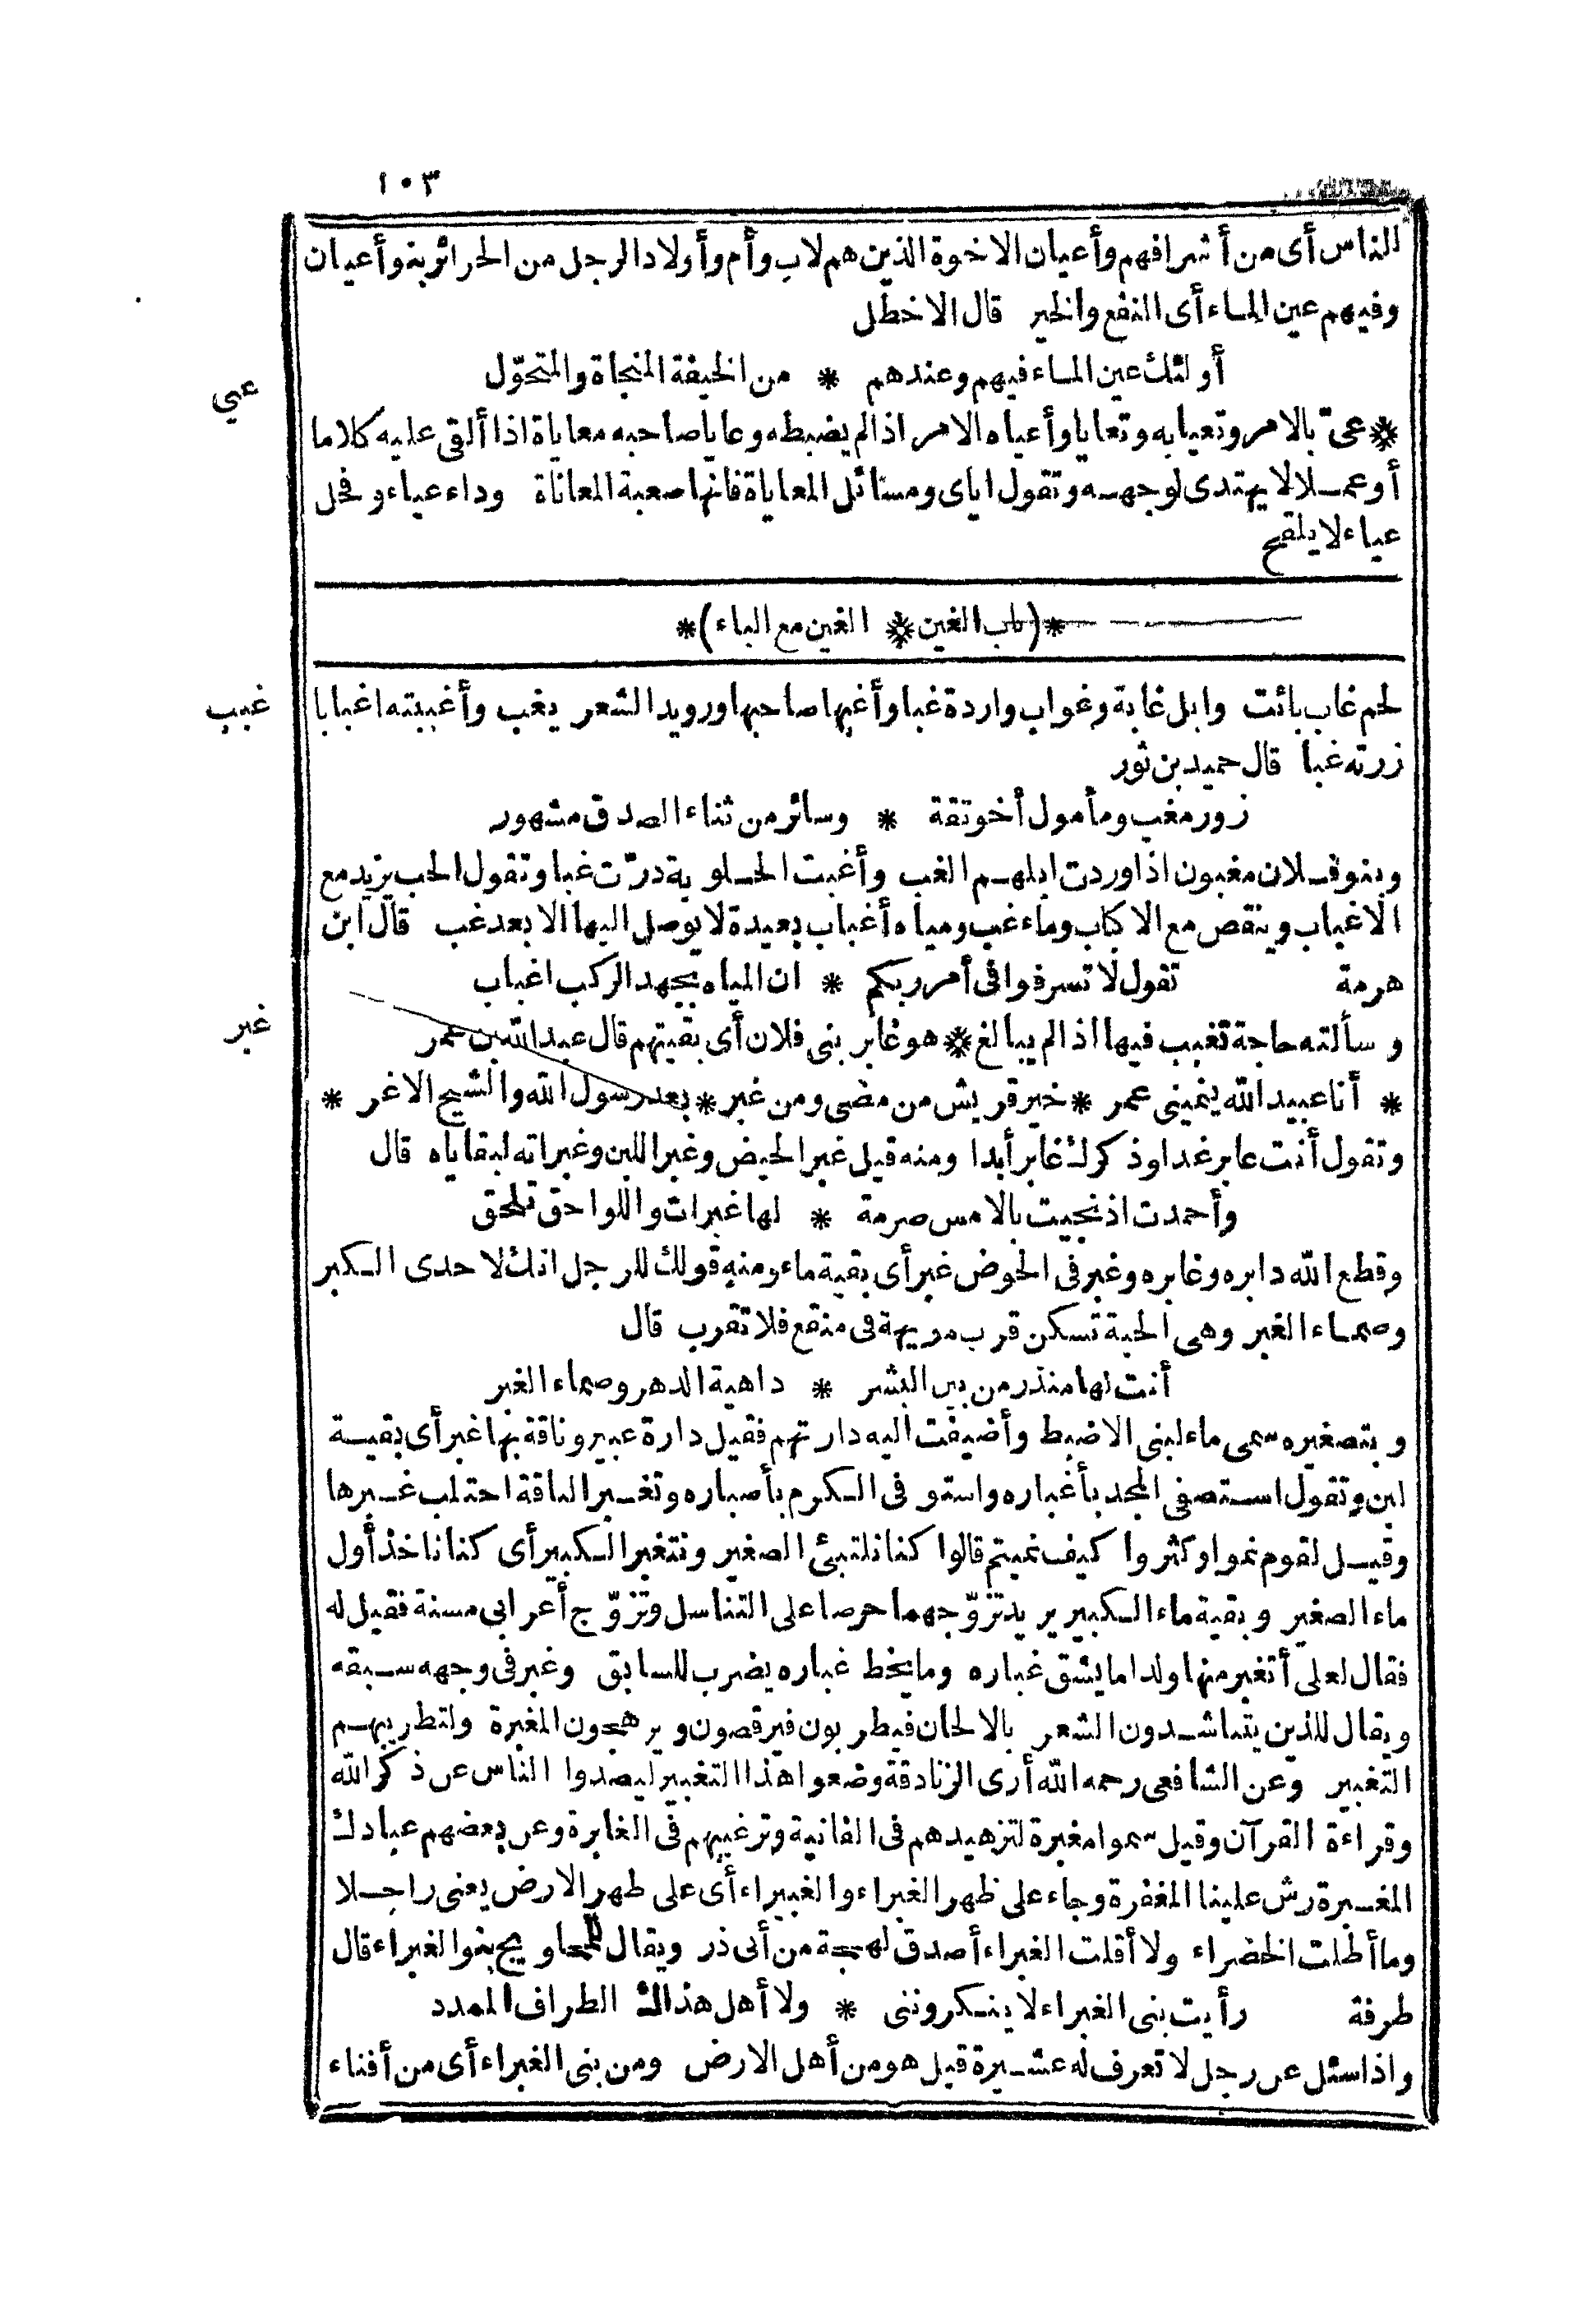 ١٠٣
الناس أى من أشرافهم وأعيان الاخوة الذين هم لاب وأم وأولاد الرجل من الحرائر بنو أعيان
وفيهم عين الماء أى النفع والخير قال الاخطل
أولئك عين الماء فيهم وعندهم * من الخيفة المنجاة والمتحوّل
عيي
* عىّ بالامر وتعيابه وتعايا وأعياه الامر اذا لم يضبطه وعايا صاحبه معاياة اذا ألقى عليه كلاما
أو عملا لا يهتدى لوجهه وتقول اياى ومسائل المعاياة فانها صعبة المعاناة وداء عياء وفحل
عياء لا يلقح
*(باب الغين * الغين مع الباء)*
غبب
لحم غاب بائت وابل غابة وغواب واردة غبا وأغبها صاحبها ورويد الشعر يغب وأغببته اغبابا
زرته غبا قال حميد بن ثور
زور مغب ومأمول أخو ثقة * وسائر من ثناء الصدق مشهور
وبنو فلان مغبون اذا وردت ابلهم الغب وأغبت الحلوبة درّت غبا وتقول الحب يزيد مع
الاغباب وينقص مع الاكباب وماء غب ومياه أغباب بعيدة لا يوصل اليها الا بعد غب قال ابن
هرمة تقول لا تسرفوا فى أمر ربكم * ان المياه بجهد الركب اغباب
غبر
وسألته حاجة تغبب فيها اذا لم يبالغ * هو غابر بنى فلان أى بقيتهم قال عبد الله بن عمر
* أنا عبيد الله ينمينى عمر * خير قريش من مضى ومن غبر * بعد رسول الله والشيخ الاغر *
وتقول أنت عابر غدا وذكرك غابر أبدا ومنه قيل غبر الحيض وغبر اللبن وغبراته لبقاياه قال
وأحمدت اذ نجيت بالامس صرمة * لها غبرات واللواحق تلحق
وقطع الله دابره وغابره وغبر فى الحوض غبر أى بقية ماء ومنه قولك للرجل انك لاحدى الكبر
وصماء الغبر وهى الحية تسكن قرب مويهة فى منقع فلا تقرب قال
أنت لها منذر من بين البشر * داهية الدهر وصماء الغبر
وبتصغيره سمى ماء لبنى الاضبط وأضيفت اليه دارتهم فقيل دارة غبير وناقة بها غبر أى بقية
لبن وتقول استصفى المجد بأغباره واستوفى الكرم بأصباره وتغبر الناقة احتلب غبرها
وقيل لقوم نموا وكثروا كيف نميتم قالوا كنا نلتبئ الصغير ونتغبر الكبير أى كنا ناخذ أول
ماء الصغير وبقية ماء الكبير يريد تزوّجهما حرصا على التناسل وتزوّج أعرابى مسنة فقيل له
فقال لعلى أتغبر منها ولدا ما يشق غباره وما يخط غباره يضرب للسابق وغبر فى وجهه سبقه
ويقال للذين يتناشدون الشعر بالالحان فيطربون فيرقصون ويرهجون المغبرة ولتطريبهم
التغبير وعن الشافعى رحمه الله أرى الزنادقة وضعوا هذا التغبير ليصدوا الناس عن ذكر الله
وقراءة القرآن وقيل سموا مغبرة لتزهيدهم فى الفانية وترغيبهم فى الغابرة وعن بعضهم عبادك
المغبرة رش علينا المغفرة وجاء على ظهر الغبراء والغبيراء أى على ظهر الارض يعنى راجلا
وما أظلت الخضراء ولا أقلت الغبراء أصدق لهجة من أبى ذر ويقال للمحاويج بنو الغبراء قال
طرفة رأيت بنى الغبراء لا ينكروننى * ولا أهل هذاك الطراف الممدد
واذا سئل عن رجل لا تعرف له عشيرة قيل هو من أهل الارض ومن بنى الغبراء أى من أفناء